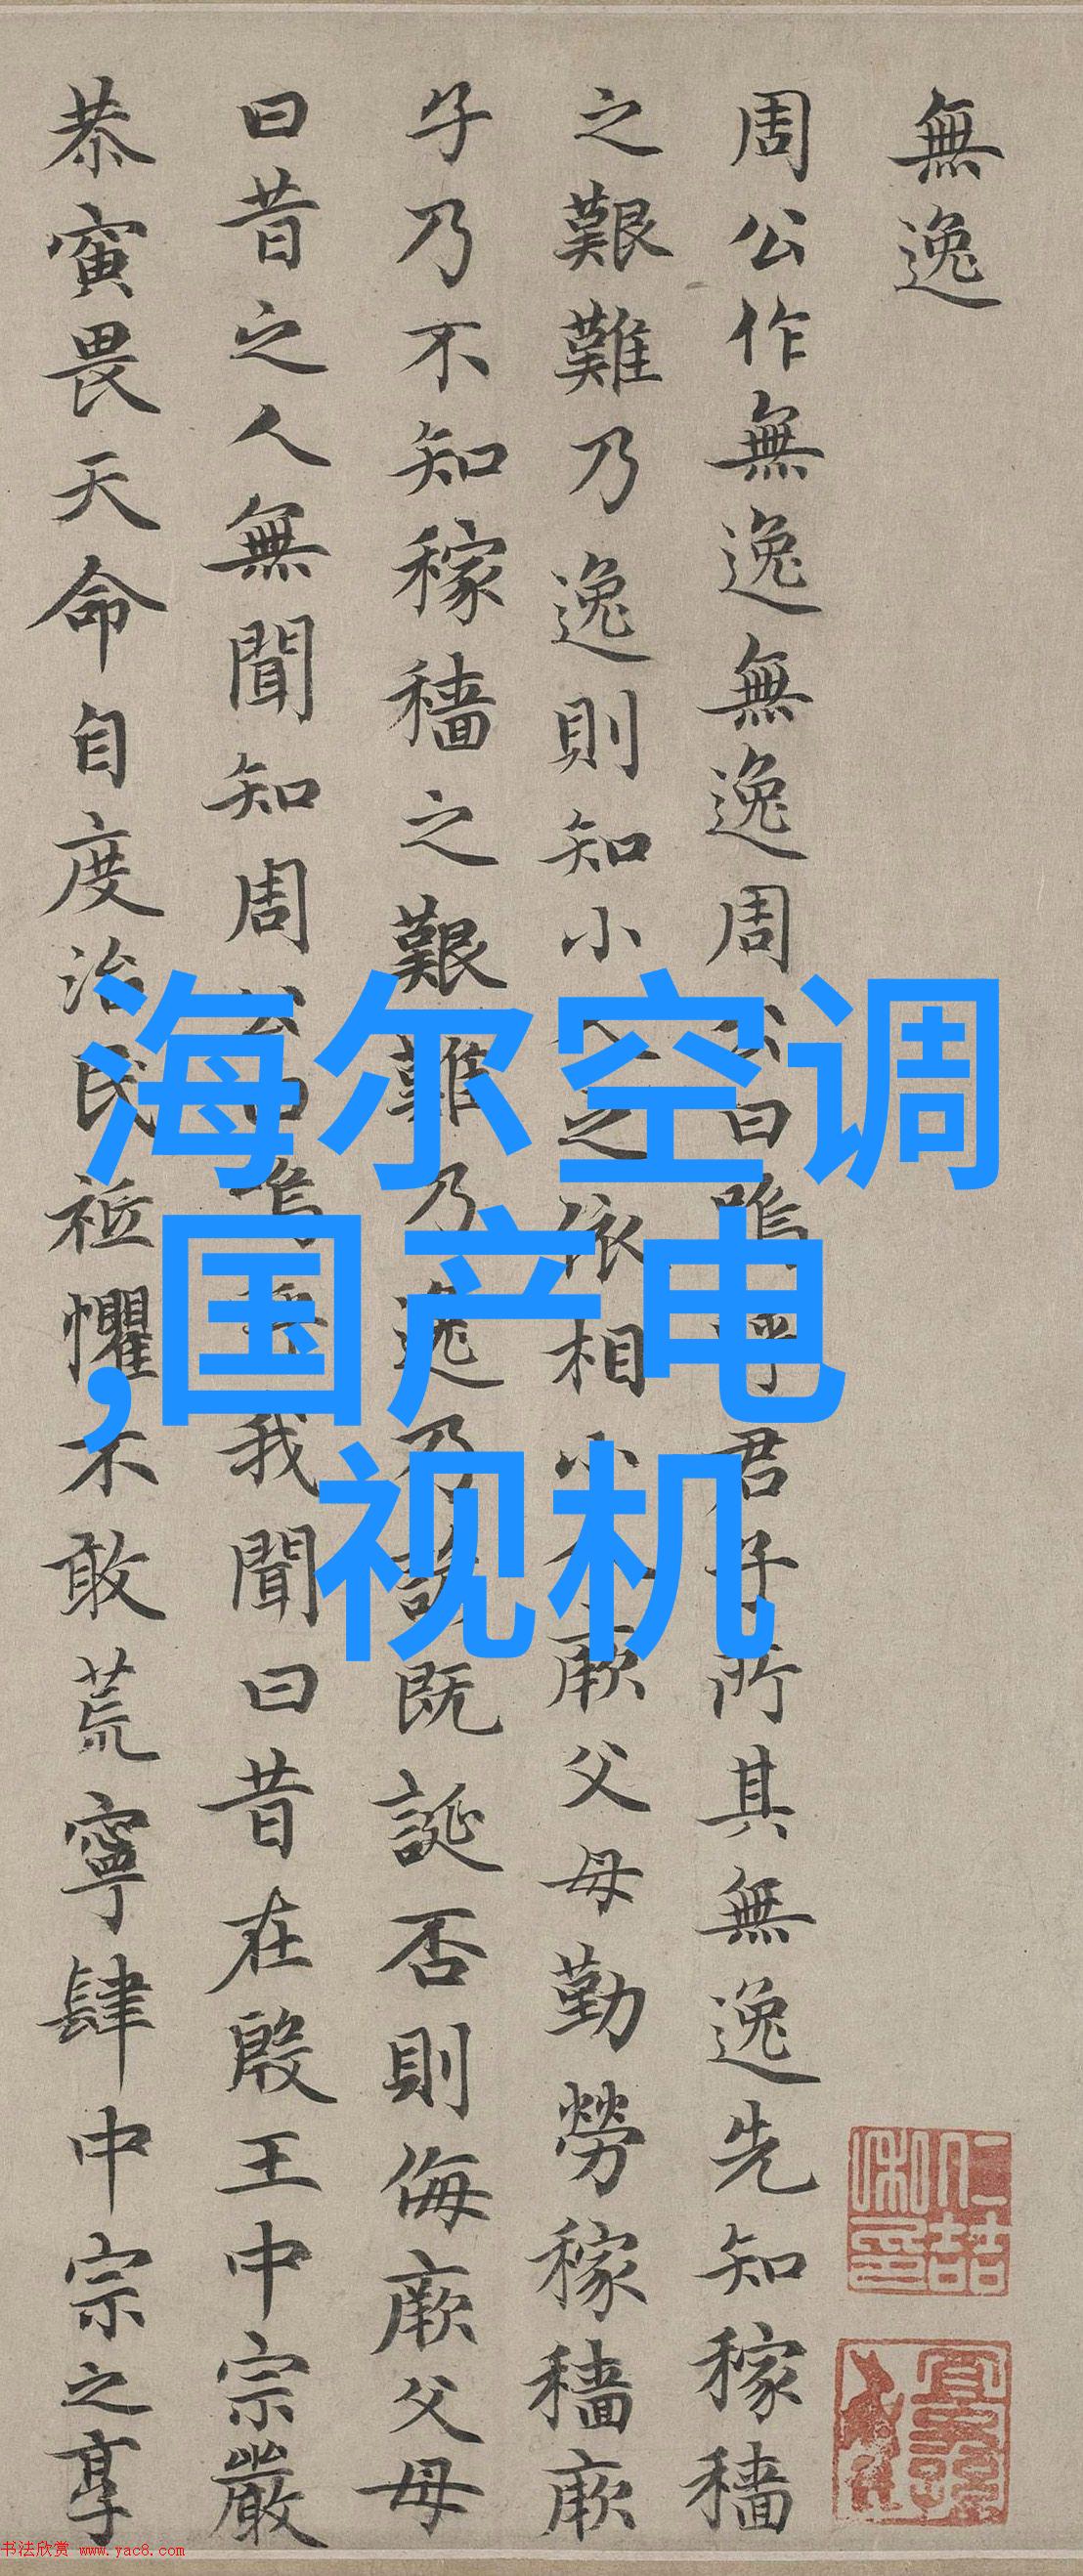 無逸
周公作無逸無逸周公曰嗚呼君子所其無逸先知稼穡
之艱難乃逸則知小人之依相小人厥父母勤勞稼穡厥
子乃不知稼穡之艱難乃逸乃諺既誕否則侮厥父母
曰昔之人無聞知周公曰嗚呼我聞曰昔在殷王中宗嚴
恭寅畏天命自度治民祗懼不敢荒寧肆中宗之享
海尔空调
,国产电
视机
书法欣赏 www.yac8.com